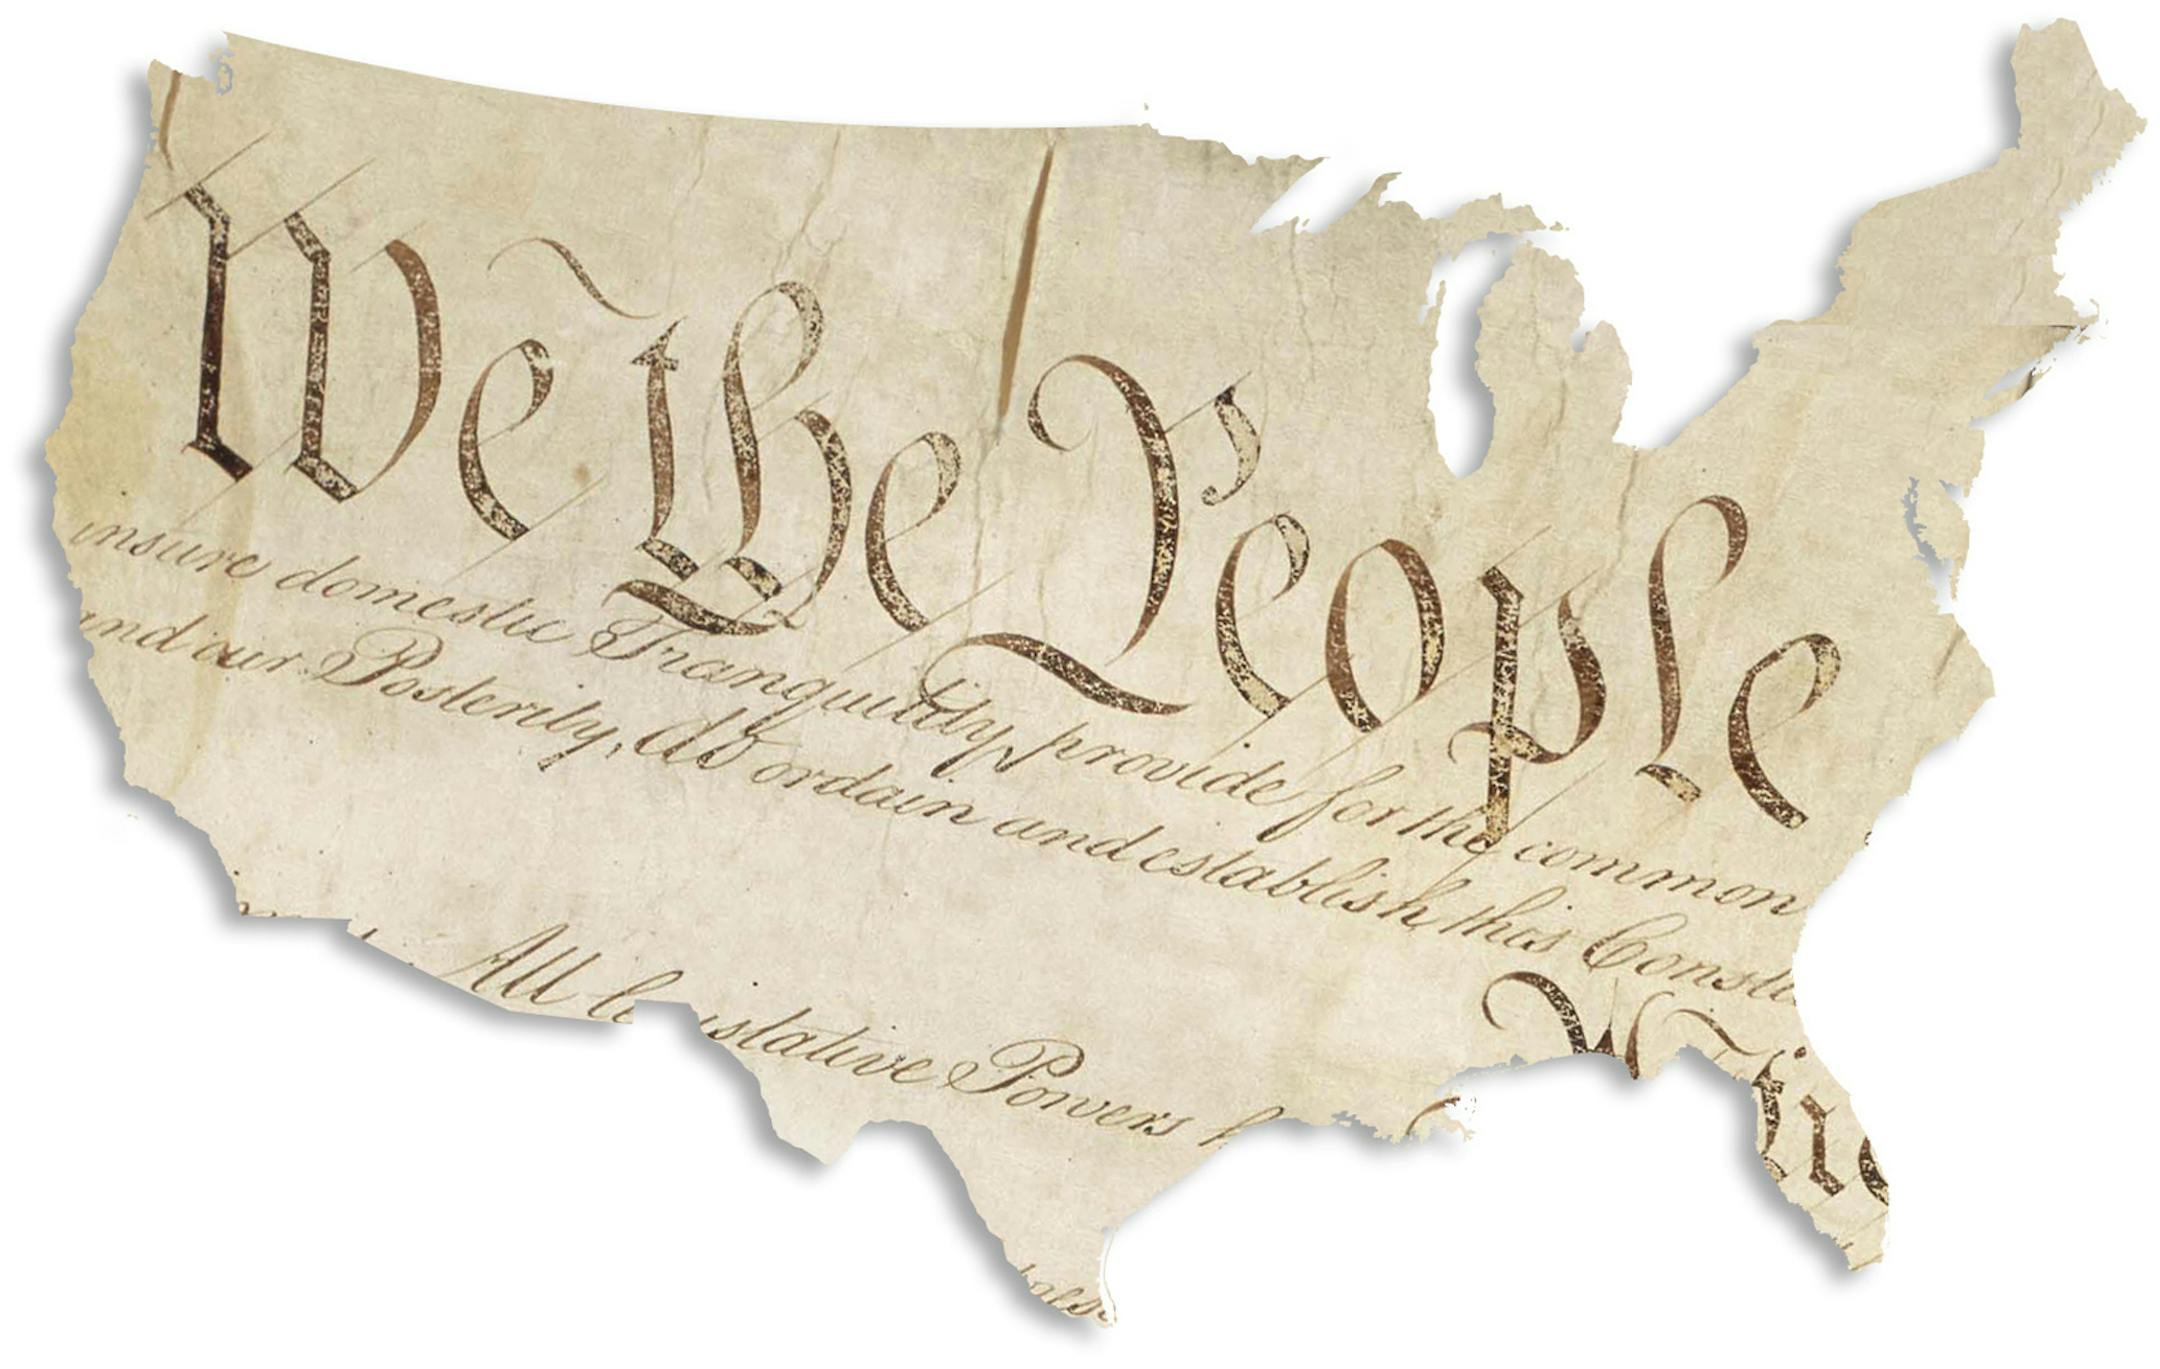 We the People
insure domestic Tranquility, provide for the common
and our Posterity, do ordain and establish this Constit
All le islative Powers h